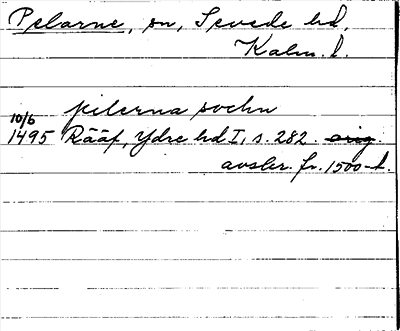 Pelarne, sn, Sevede hd,
Kalm. l.
pilerna sochn
10/6
1495 Rääf, Ydre hd I, s. 282. orig
avskr. fr. 1500-t.